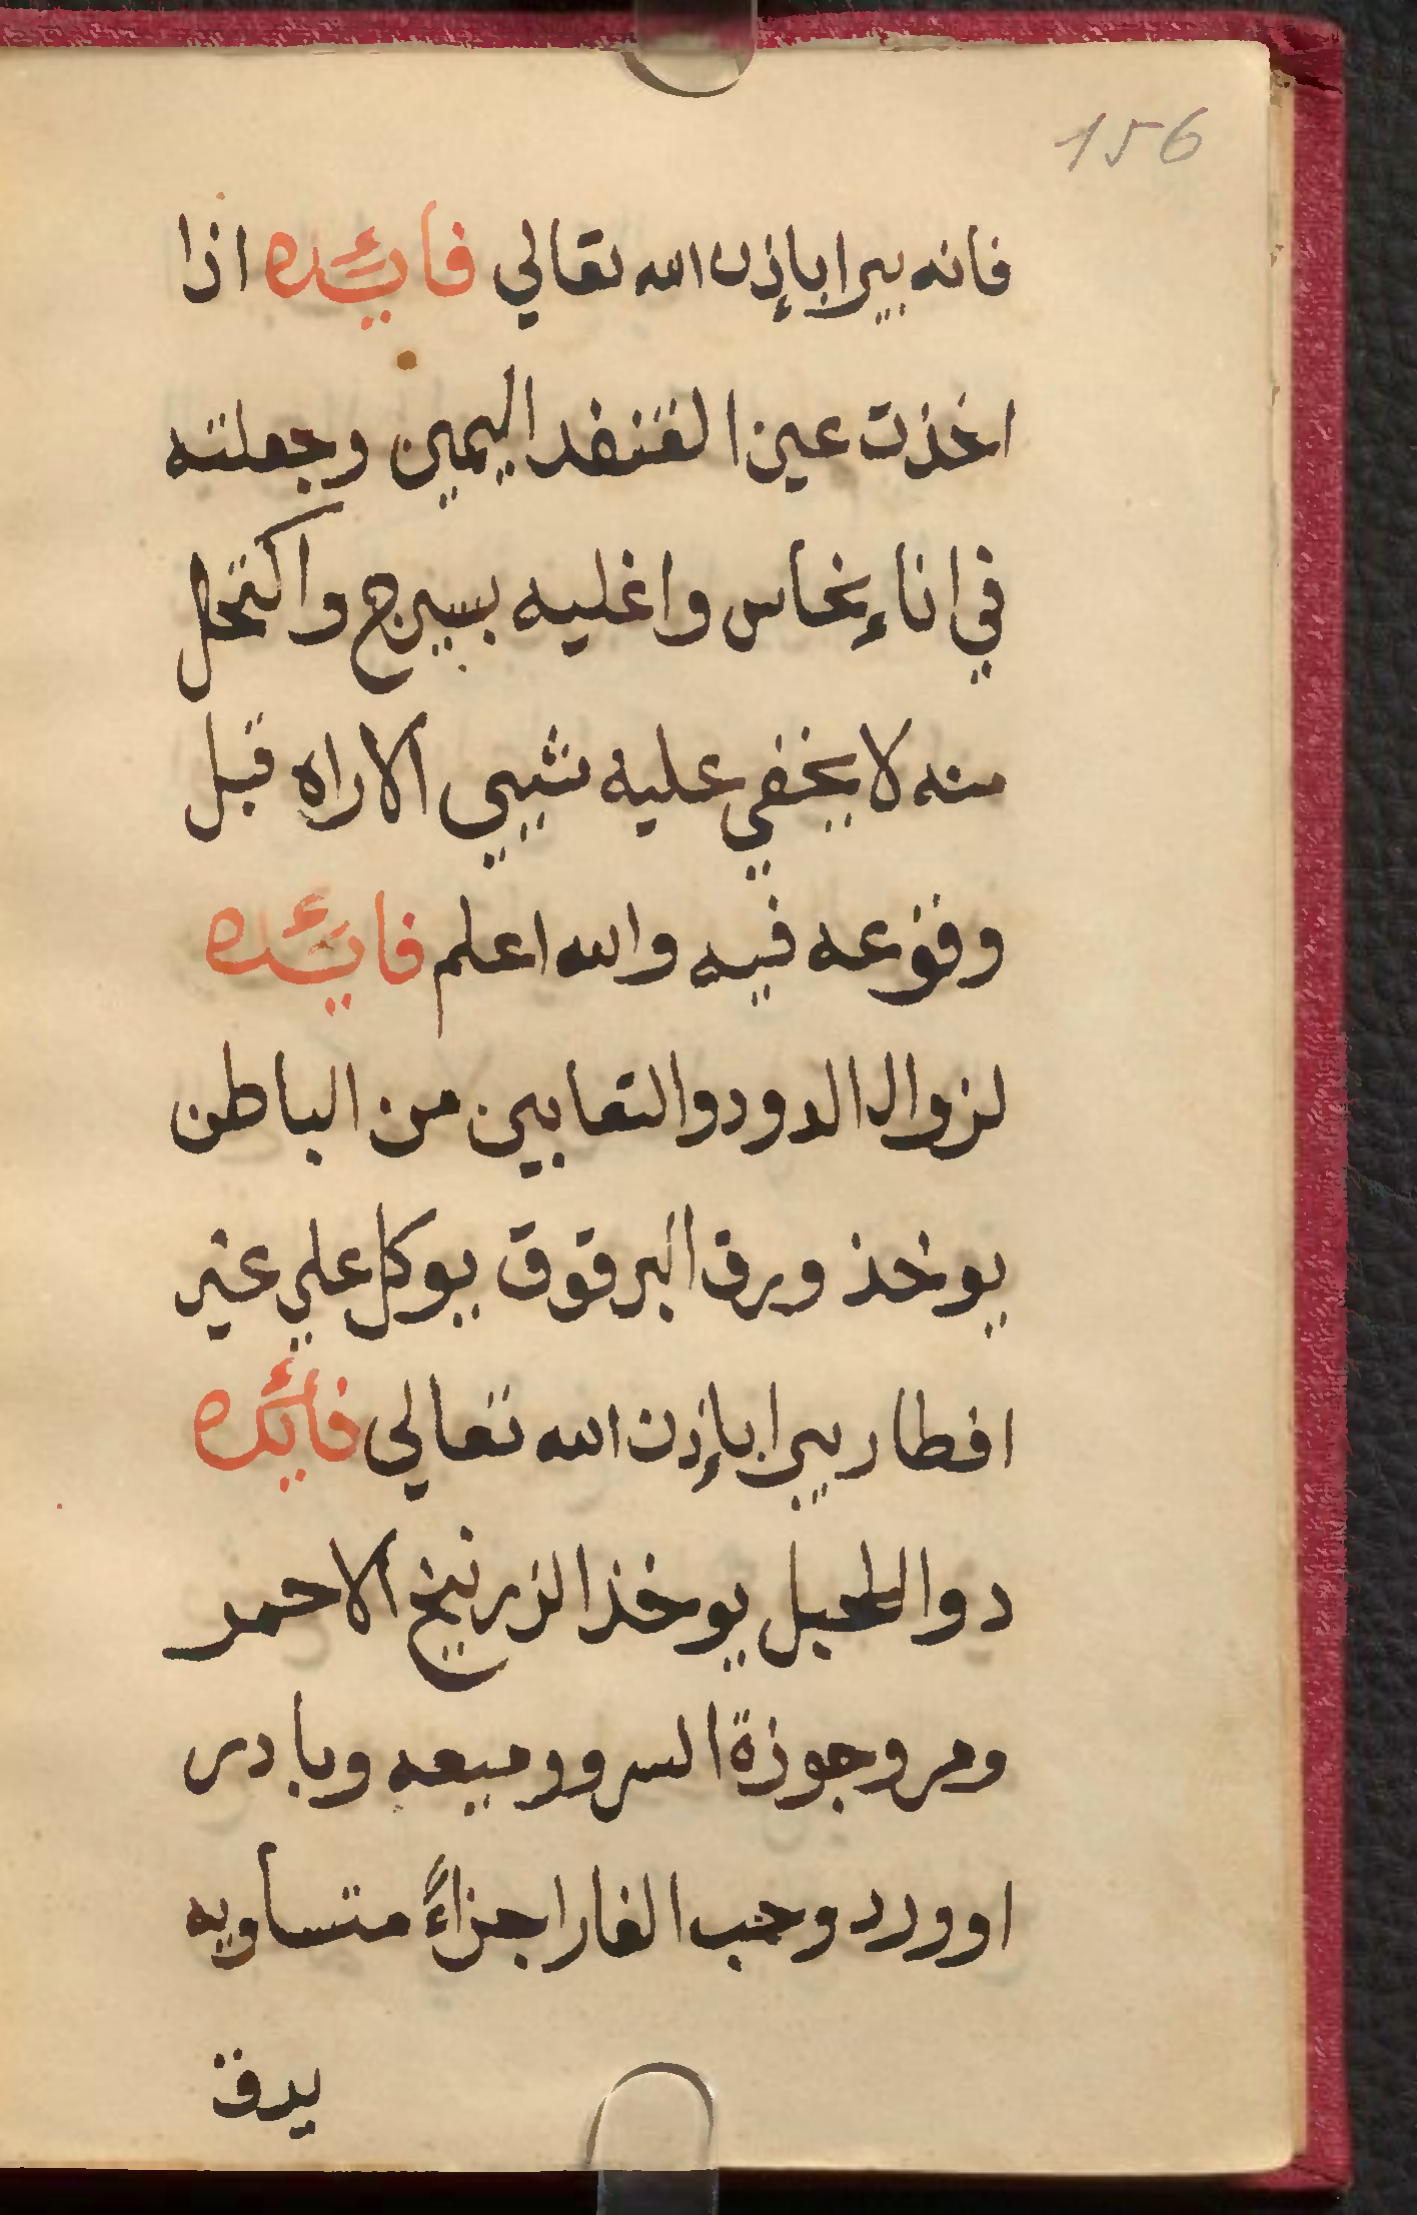 156
فانه يبرا بإذن الله تعالي فائده اذا
اخذت عين القنفد اليمين وجعلته
في اناءٍ نحاس واغليه بسيرج واكتحل
منه لا يخفي عليه شيي الا راه قبل
وقوعه فيه والله اعلم فائده
لزوال الدود والتعابين من الباطن
يوخذ ورق البرقوق يوكل علي غير
افطار يبرا بإذن الله تعالي فائده
دوا للحبل يوخذ الزرنيخ الاحمر
ومر وجوزة السرو وميعه وبادر
او ورد وحب الغار اجزاءً متساويه
يدق